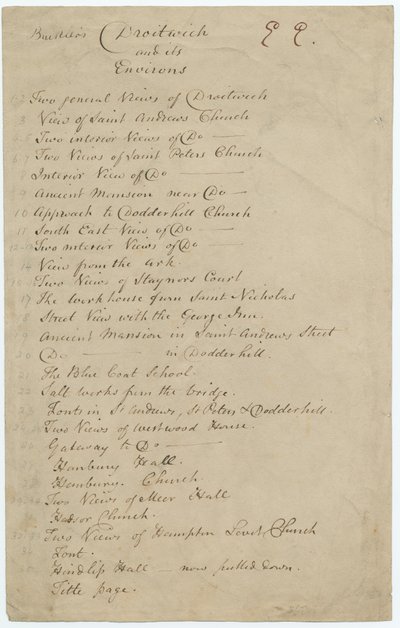 Buckler's Droitwich E E.
and its
Environs
1-2 Two general Views of Droitwich
3 View of Saint Andrews Church
4-5 Two interior Views of Do —
6-7 Two Views of Saint Peters Church
8 Interior View of Do —
9 Ancient Mansion near Do —
10 Approach to Dodderhill Church
11 South East View of Do —
12-13 Two interior Views of Do —
14 View from the Ark.
15-16 Two Views of Staynors Court
17 The workhouse from Saint Nicholas
18 Street View with the George Inn.
19 Ancient Mansion in Saint Andrews Street
20 Do — in Dodderhill.
21 The Blue Coat School.
22 Salt works from the bridge.
Fonts in St Andrews, St Peters & Dodderhill.
Two Views of Westwood House.
Gateway to Do —
Hanbury Hall.
Hanbury. Church
Two Views of Meer Hall
Hadsor Church.
Two Views of Hampton Lovet Church
Font.
Hindlip Hall — now pulled down.
Title page.